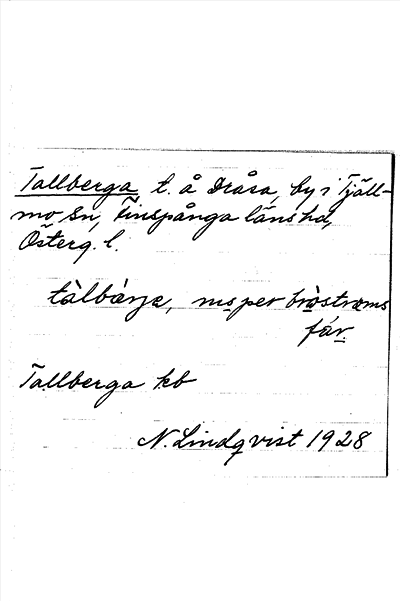 Tallberga t. å Dråsa, by i Tjäll-
mo sn, Finspånga läns hd,
Österg. l.
tàlbárja, ms per bròstrœms
fár.
Tallberga kb
N. Lindqvist 1928